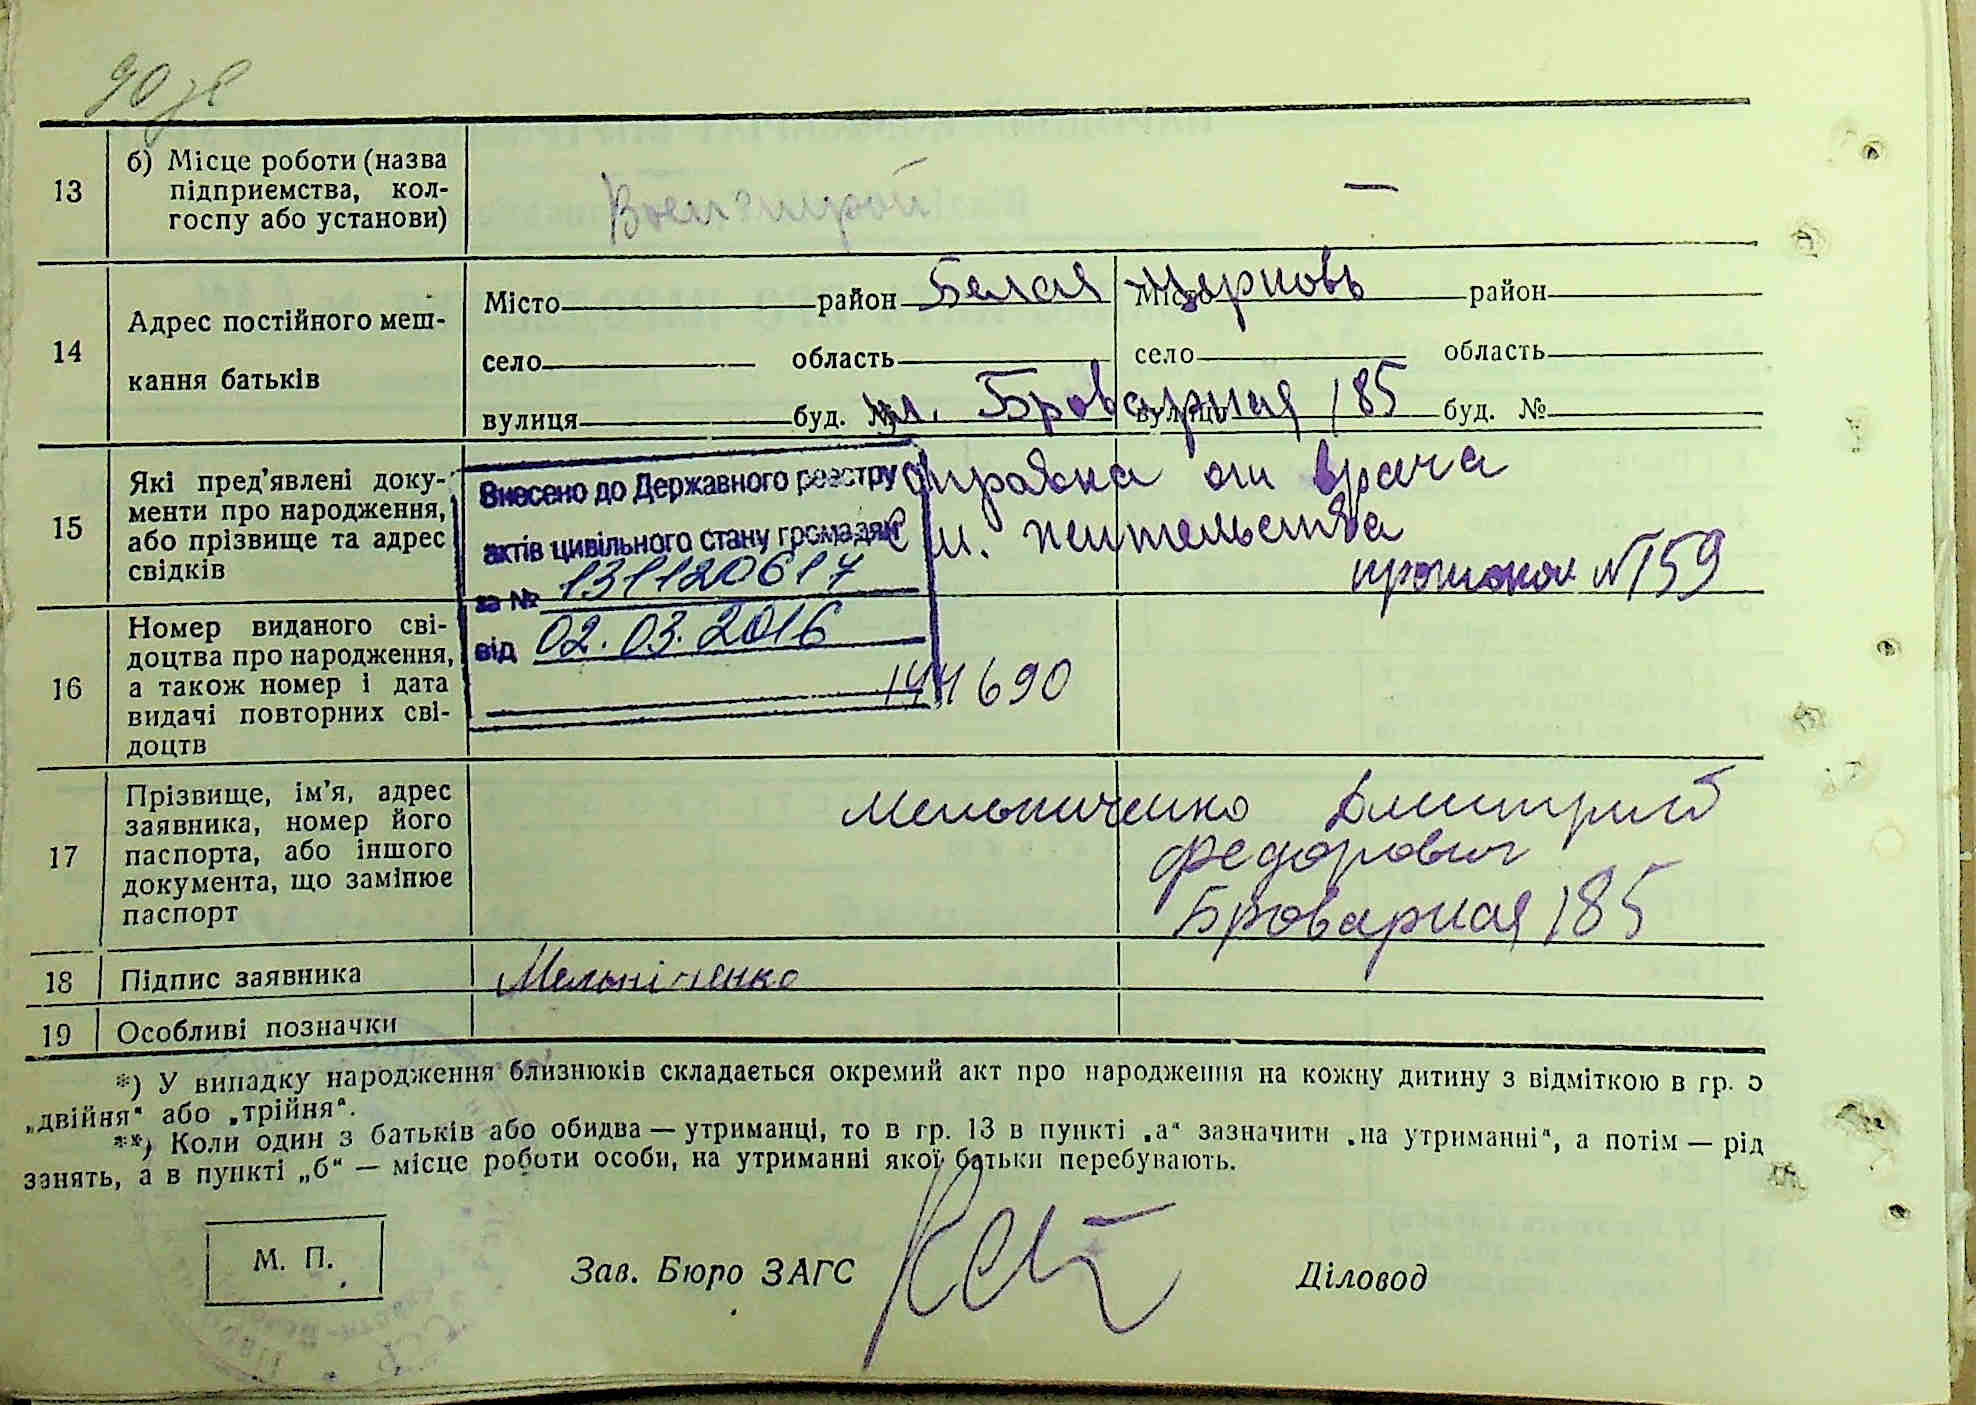 13
б) Місце роботи (назва
підприємства, кол-
госпу або установи)
Военстрой —
14
Адрес постійного меш-
кання батьків
Місто район Белая Церковь Місто район
село область село область
вулиця буд. № ул. Броварная 185 вулиця буд. №
15
Які пред'явлені доку-
менти про народження,
або прізвище та адрес
свідків
справка от врача
с м. жительства
протокол №159
Внесено до Державного реєстру
актів цивільного стану громадян
за № 131120617
від 02.03.2016
16
Номер виданого сві-
доцтва про народження,
а також номер і дата
видачі повторних сві-
доцтв
690
17
Прізвище, ім'я, адрес
заявника, номер його
паспорта, або іншого
документа, що замінює
паспорт
Мельниченко Дмитрий
Федорович
Броварная 185
18 Підпис заявника Мельніченко
19 Особливі позначки
*) У випадку народження близнюків складається окремий акт про народження на кожну дитину з відміткою в гр.
„двійня“ або „трійня“.
**) Коли один з батьків або обидва — утриманці, то в гр. 13 в пункті „а“ зазначити „на утриманні“, а потім — рід
занять, а в пункті „б“ — місце роботи особи, на утриманні якої батьки перебувають.
М. П. Зав. Бюро ЗАГС Діловод